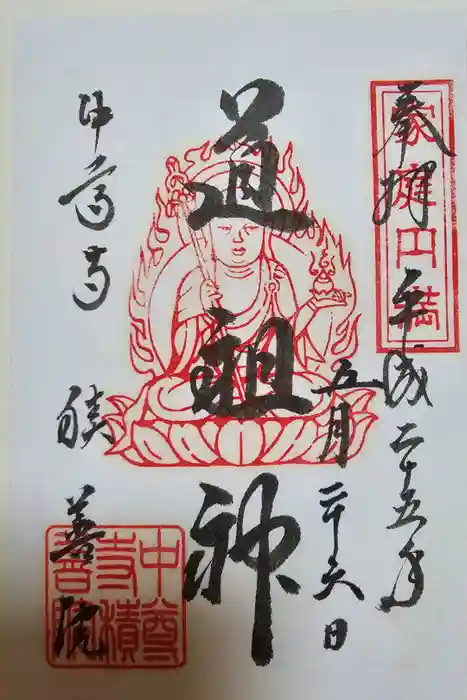 家庭円満
奉拝 平成二十五年
五月二十六日
道祖神
中尊寺 積善院
中尊寺積善院